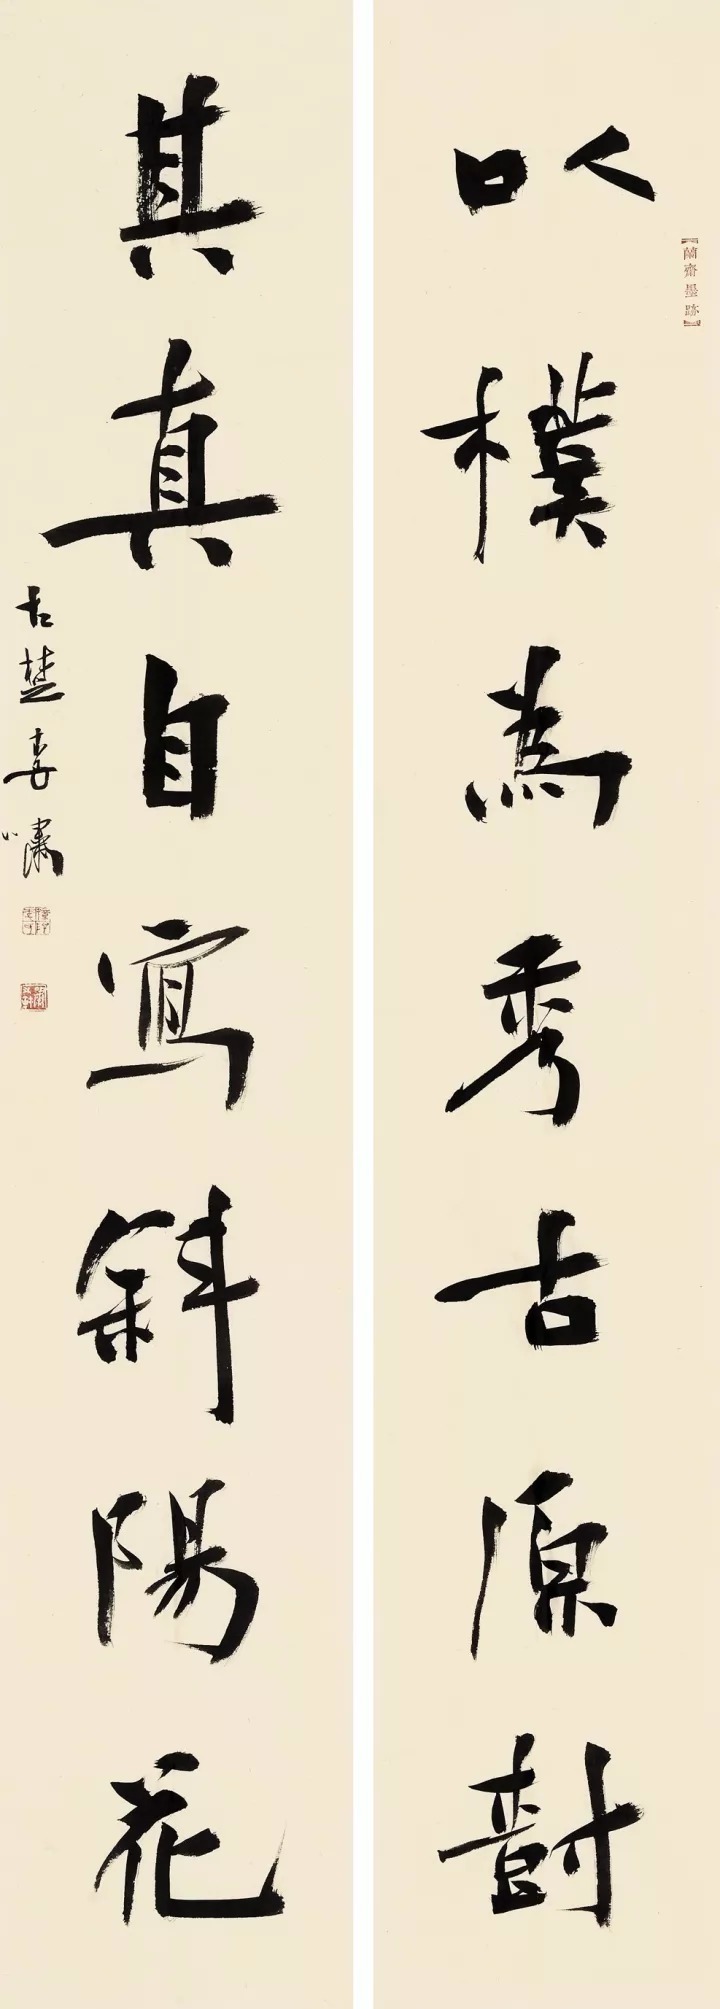 【蘭齋墨跡】
以樸為秀古原樹
其真自寫斜陽花
古楚 嘯